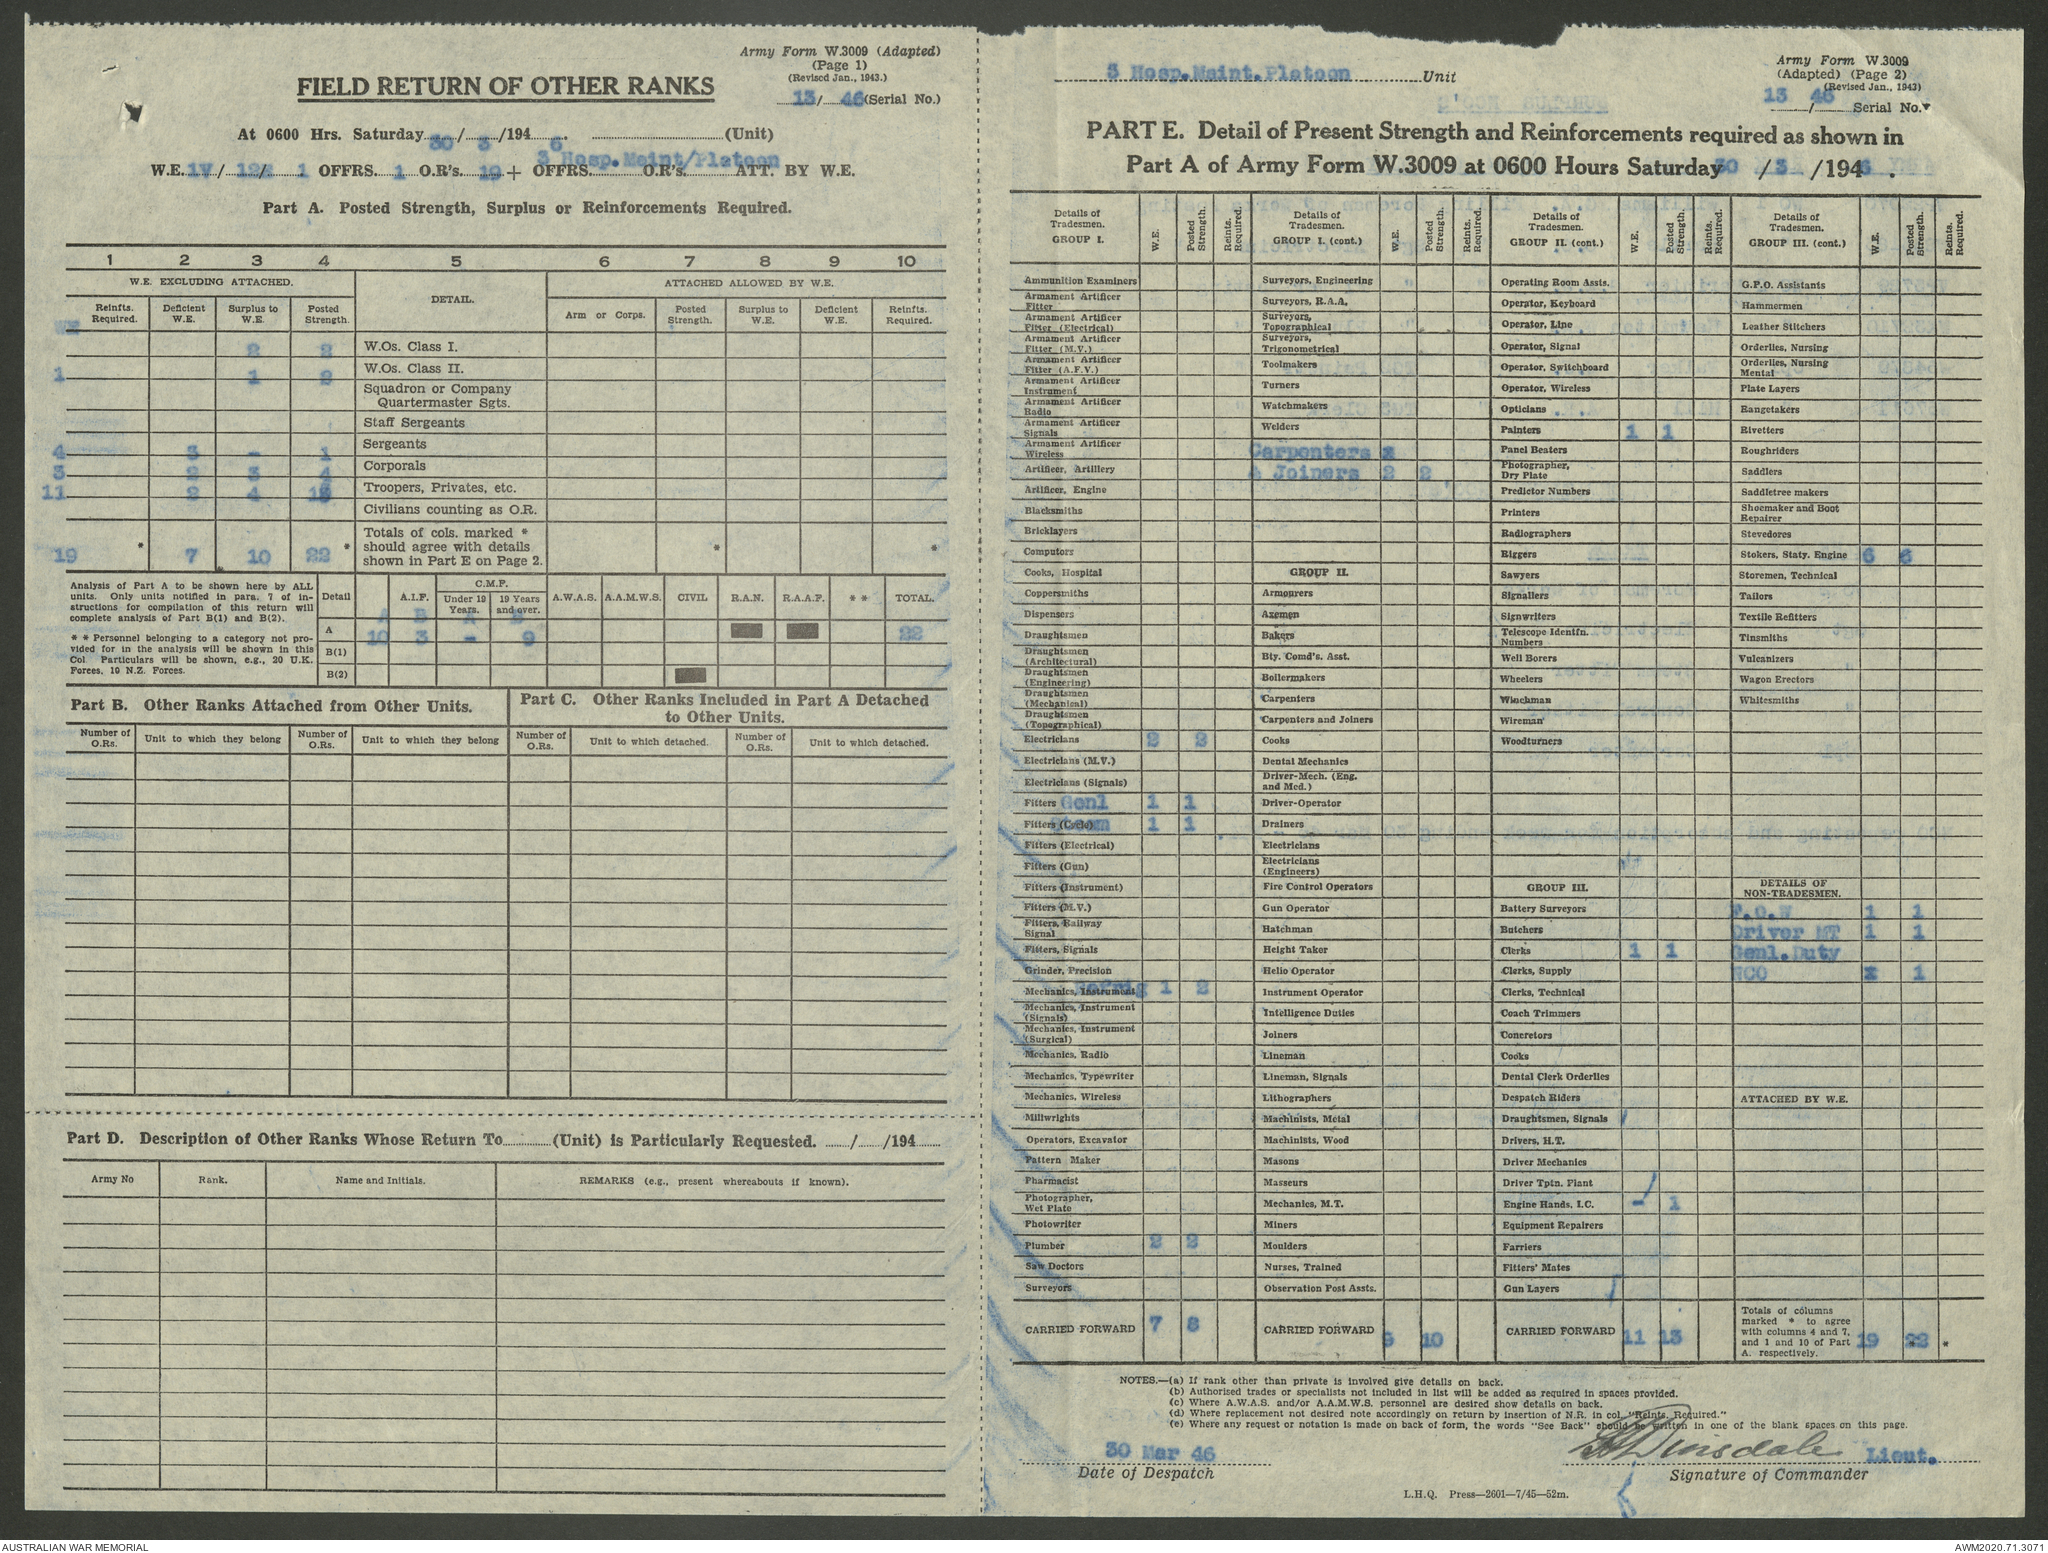 Army Form W.3009 (Adapted)
(Page 1)
(Revised Jan., 1943.)
13/ 46 (Serial No.)
FIELD RETURN OF OTHER RANKS
At 0600 Hrs. Saturday 30/ 3 /194 6 . (Unit)
3 Hosp.Maint/Platoon
W.E. 1V / 12 / 1 OFFRS. 1 O.R's. 19 + OFFRS. O.R's. ATT. BY W.E.
Part A. Posted Strength, Surplus or Reinforcements Required.
1 2 3 4 5 6 7 8 9 10
W.E. EXCLUDING ATTACHED. DETAIL. ATTACHED ALLOWED BY W.E.
Reinfts. Required. Deficient W.E. Surplus to W.E. Posted Strength. Arm or Corps. Posted Strength. Surplus to W.E. Deficient W.E. Reinfts. Required.
WE
2 2 W.Os. Class I.
1 1 2 W.Os. Class II.
Squadron or Company
Quartermaster Sgts.
Staff Sergeants
4 3 - 1 Sergeants
3 2 3 4 Corporals
11 2 4 13 Troopers, Privates, etc.
Civilians counting as O.R.
19 * 7 10 22 * Totals of cols. marked * should agree with details shown in Part E on Page 2. * *
Analysis of Part A to be shown here by ALL
units. Only units notified in para. 7 of in-
structions for compilation of this return will
complete analysis of Part B(1) and B(2).
* * Personnel belonging to a category not pro-
vided for in the analysis will be shown in this
Col. Particulars will be shown, e.g., 20 U.K.
Forces, 10 N.Z. Forces.
Detail A.I.F. C.M.F. Under 19 Years. 19 Years and over. A.W.A.S. A.A.M.W.S. CIVIL R.A.N. R.A.A.F. * * TOTAL.
A B A B
A 10 3 - 9 22
B(1)
B(2)
Part B. Other Ranks Attached from Other Units.
Part C. Other Ranks Included in Part A Detached
to Other Units.
Number of O.Rs. Unit to which they belong Number of O.Rs. Unit to which they belong Number of O.Rs. Unit to which detached. Number of O.Rs. Unit to which detached.
Part D. Description of Other Ranks Whose Return To (Unit) is Particularly Requested. / /194
Army No Rank. Name and Initials. REMARKS (e.g., present whereabouts if known).
3 Hosp.Maint.Platoon Unit
Army Form W.3009
(Adapted) (Page 2)
(Revised Jan., 1943)
13 / 46 Serial No.
PART E. Detail of Present Strength and Reinforcements required as shown in
Part A of Army Form W.3009 at 0600 Hours Saturday 30 / 3 /194 6 .
Details of Tradesmen. GROUP I. W.E. Posted Strength. Reints. Required.
Ammunition Examiners
Armament Artificer Fitter
Armament Artificer Fitter (Electrical)
Armament Artificer Fitter (M.V.)
Armament Artificer Fitter (A.F.V.)
Armament Artificer Instrument
Armament Artificer Radio
Armament Artificer Signals
Armament Artificer Wireless
Artificer, Artillery
Artificer, Engine
Blacksmiths
Bricklayers
Computors
Cooks, Hospital
Coppersmiths
Dispensers
Draughtsmen
Draughtsmen (Architectural)
Draughtsmen (Engineering)
Draughtsmen (Mechanical)
Draughtsmen (Topographical)
Electricians 2 2
Electricians (M.V.)
Electricians (Signals)
Fitters Genl 1 1
Fitters (Cycle) Steam 1 1
Fitters (Electrical)
Fitters (Gun)
Fitters (Instrument)
Fitters (M.V.)
Fitters, Railway Signal
Fitters, Signals
Grinder, Precision
Mechanics, Instrument Refrig 1 2
Mechanics, Instrument (Signals)
Mechanics, Instrument (Surgical)
Mechanics, Radio
Mechanics, Typewriter
Mechanics, Wireless
Millwrights
Operators, Excavator
Pattern Maker
Pharmacist
Photographer, Wet Plate
Photowriter
Plumber 2 2
Saw Doctors
Surveyors
CARRIED FORWARD 7 8
Details of Tradesmen. GROUP I. (cont.) W.E. Posted Strength. Reints. Required.
Surveyors, Engineering
Surveyors, R.A.A.
Surveyors, Topographical
Surveyors, Trigonometrical
Toolmakers
Turners
Watchmakers
Welders
Carpenters x
& Joiners 2 2
GROUP II.
Armourers
Axemen
Bakers
Bty. Comd's. Asst.
Boilermakers
Carpenters
Carpenters and Joiners
Cooks
Dental Mechanics
Driver-Mech. (Eng. and Med.)
Driver-Operator
Drainers
Electricians
Electricians (Engineers)
Fire Control Operators
Gun Operator
Hatchman
Height Taker
Helio Operator
Instrument Operator
Intelligence Duties
Joiners
Lineman
Lineman, Signals
Lithographers
Machinists, Metal
Machinists, Wood
Masons
Masseurs
Mechanics, M.T.
Miners
Moulders
Nurses, Trained
Observation Post Assts.
CARRIED FORWARD 9 10
Details of Tradesmen. GROUP II. (cont.) W.E. Posted Strength. Reints. Required.
Operating Room Assts.
Operator, Keyboard
Operator, Line
Operator, Signal
Operator, Switchboard
Operator, Wireless
Opticians
Painters 1 1
Panel Beaters
Photographer, Dry Plate
Predictor Numbers
Printers
Radiographers
Riggers
Sawyers
Signallers
Signwriters
Telescope Identfn. Numbers
Well Borers
Wheelers
Winchman
Wireman
Woodturners
GROUP III.
Battery Surveyors
Butchers
Clerks 1 1
Clerks, Supply
Clerks, Technical
Coach Trimmers
Concretors
Cooks
Dental Clerk Orderlies
Despatch Riders
Draughtsmen, Signals
Drivers, H.T.
Driver Mechanics
Driver Tptn. Plant
Engine Hands, I.C. - 1
Equipment Repairers
Farriers
Fitters' Mates
Gun Layers
CARRIED FORWARD 11 13
Details of Tradesmen. GROUP III. (cont.) W.E. Posted Strength. Reints. Required.
G.P.O. Assistants
Hammermen
Leather Stitchers
Orderlies, Nursing
Orderlies, Nursing Mental
Plate Layers
Rangetakers
Rivetters
Roughriders
Saddlers
Saddletree makers
Shoemaker and Boot Repairer
Stevedores
Stokers, Staty. Engine 6 6
Storemen, Technical
Tailors
Textile Refitters
Tinsmiths
Vulcanizers
Wagon Erectors
Whitesmiths
DETAILS OF NON-TRADESMEN.
F.o.W 1 1
Driver MT 1 1
Genl.Duty
NCO x 1
ATTACHED BY W.E.
Totals of columns marked * to agree with columns 4 and 7, and 1 and 10 of Part A. respectively. 19 22 *
NOTES.—(a) If rank other than private is involved give details on back.
(b) Authorised trades or specialists not included in list will be added as required in spaces provided.
(c) Where A.W.A.S. and/or A.A.M.W.S. personnel are desired show details on back.
(d) Where replacement not desired note accordingly on return by insertion of N.R. in col. "Reints. Required."
(e) Where any request or notation is made on back of form, the words "See Back" should be written in one of the blank spaces on this page.
30 Mar 46
Date of Despatch
Dinsdale Lieut.
Signature of Commander
L.H.Q. Press—2601—7/45—52m.
AUSTRALIAN WAR MEMORIAL
AWM2020.71.3071